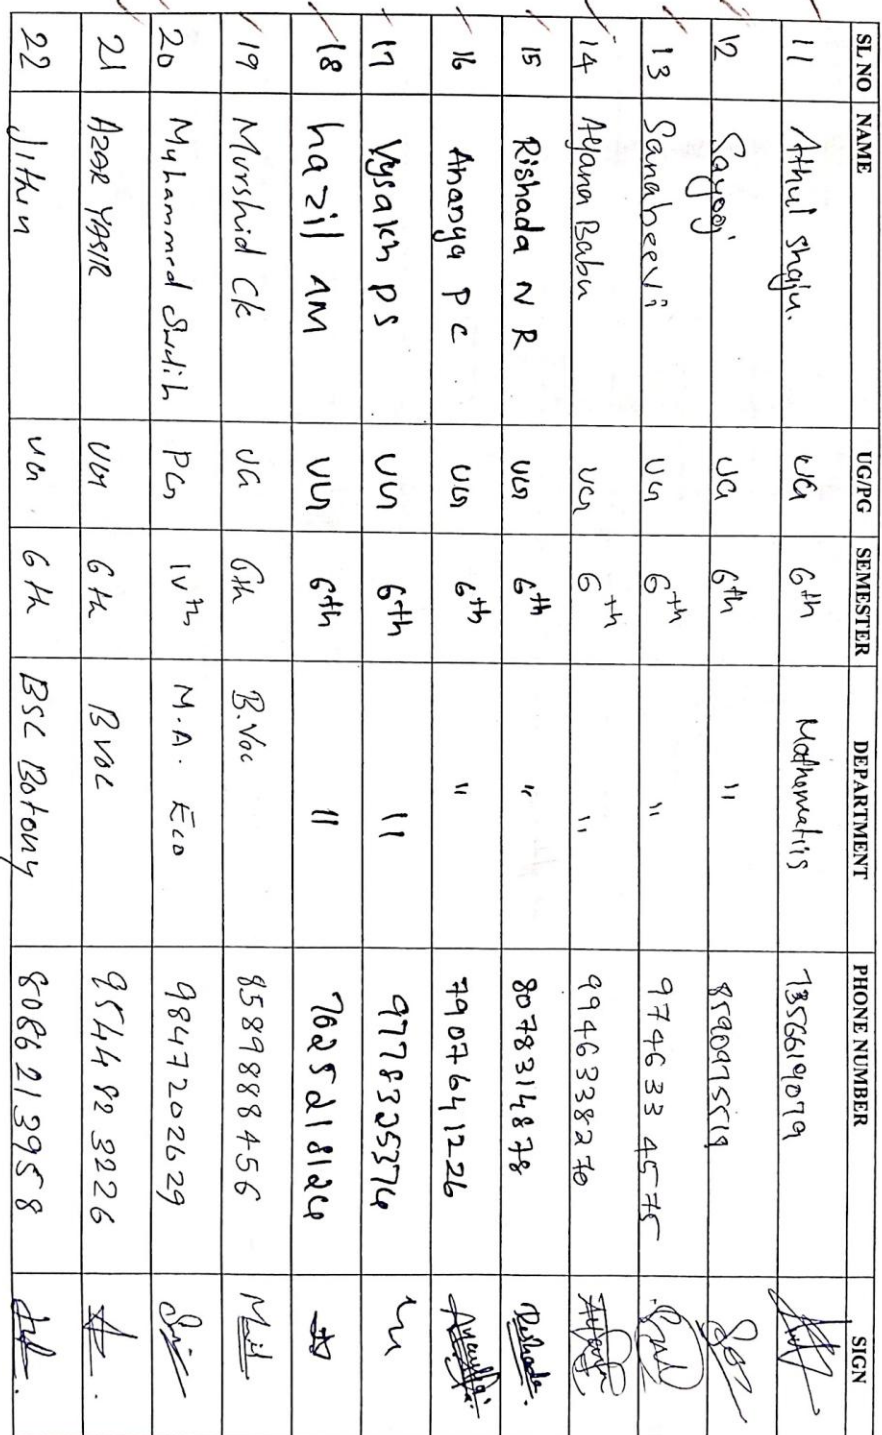 SL NO NAME UG/PG SEMESTER DEPARTMENT PHONE NUMBER SIGN
11 Athul Shaju. UG 6th Mathematics 7356619079
12 Sayooj UG 6th " 8590975519
13 Sanabeevi UG 6th " 9746334575
14 Ayana Babu UG 6th " 9946338270
15 Rishada N R UG 6th " 8078314878 Rishada.
16 Ananya P C . UG 6th " 7907641226
17 Vysakh PS UG 6th " 9778325374
18 hazil AM UG 6th " 7025218124
19 Murshid Ck UG 6th B.Voc 8589888456
20 Muhammed PG IVth M.A. Eco 9847202629
21 AZAR YASIR UG 6th BVOC 9544823226
22 Jithin UG . 6th BSC Botony 8086213958